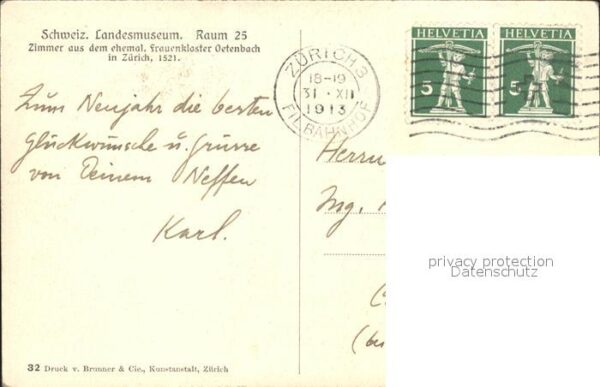 Schweiz. Landesmuseum. Raum 25
Zimmer aus dem ehemal. Frauenkloster Oetenbach
in Zürich, 1521.
ZÜRICH 3
18-19
31 · XII
1913
FIL. BAHNHOF
HELVETIA
5
HELVETIA
5
Zum Neujahr die besten
Glückwünsche u. Grüsse
von Deinem Neffen
Karl.
Herrn
Ing.
privacy protection
Datenschutz
32 Druck v. Bronner & Cie., Kunstanstalt, Zürich